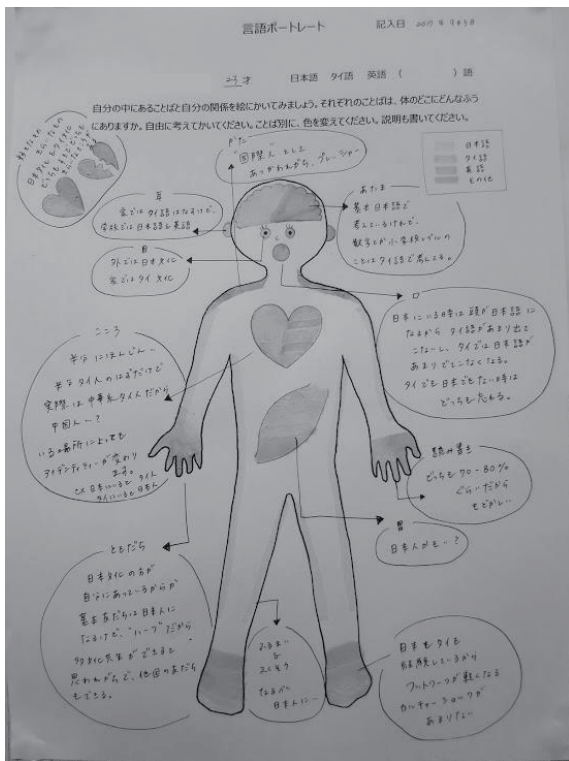 言語ポートレート 記入日 2017年9月3日
23才 日本語 タイ語 英語 ( )語
自分の中にあることばと自分の関係を絵にかいてみましょう。それぞれのことばは、体のどこにどんなふう
にありますか。自由に考えてかいてください。ことば別に、色を変えてください。説明も書いてください。
日本語
タイ語
英語
その他
かた
国際人として
あつかわれがち、プレッシャー
耳
家ではタイ語はなすけど、
学校では日本語と英語
目
外では日本文化
家ではタイ文化
あたま
基本日本語で
考えているけれど、
数字とか小学校レベルの
ことはタイ語で考えてる。
口
日本にいる時は頭が日本語に
なるから タイ語があまり出て
こないし、タイでは日本語が
あまりでてこなくなる。
タイでも日本でもない時は
どっちも忘れる。
こころ
半分にほんじん、
半分タイ人のはずだけど
実際は中華系タイ人だから
中国人〜?
いる場所によっても
アイデンティティーが変わり
ます。
ex 日本にいると タイ人
タイにいると日本人
読み書き
どっちも70-80%
ぐらいだから
もどかしい
胃
日本人かも…?
ともだち
日本文化の方が
自分にあっているからか
基本友だちは日本人に
なるけど、"ハーフ"だから
多文化共生ができると
思われがちで、他国の友だち
もできる。
ふるまい
&
ふくそう
なるべく
日本人に…
日本もタイも
経験しているから
フットワークが軽くなる
カルチャーショックが
あまりない